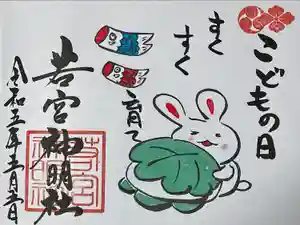 こどもの日
すくすく
育て
若宮神明社
令和五年五月五日